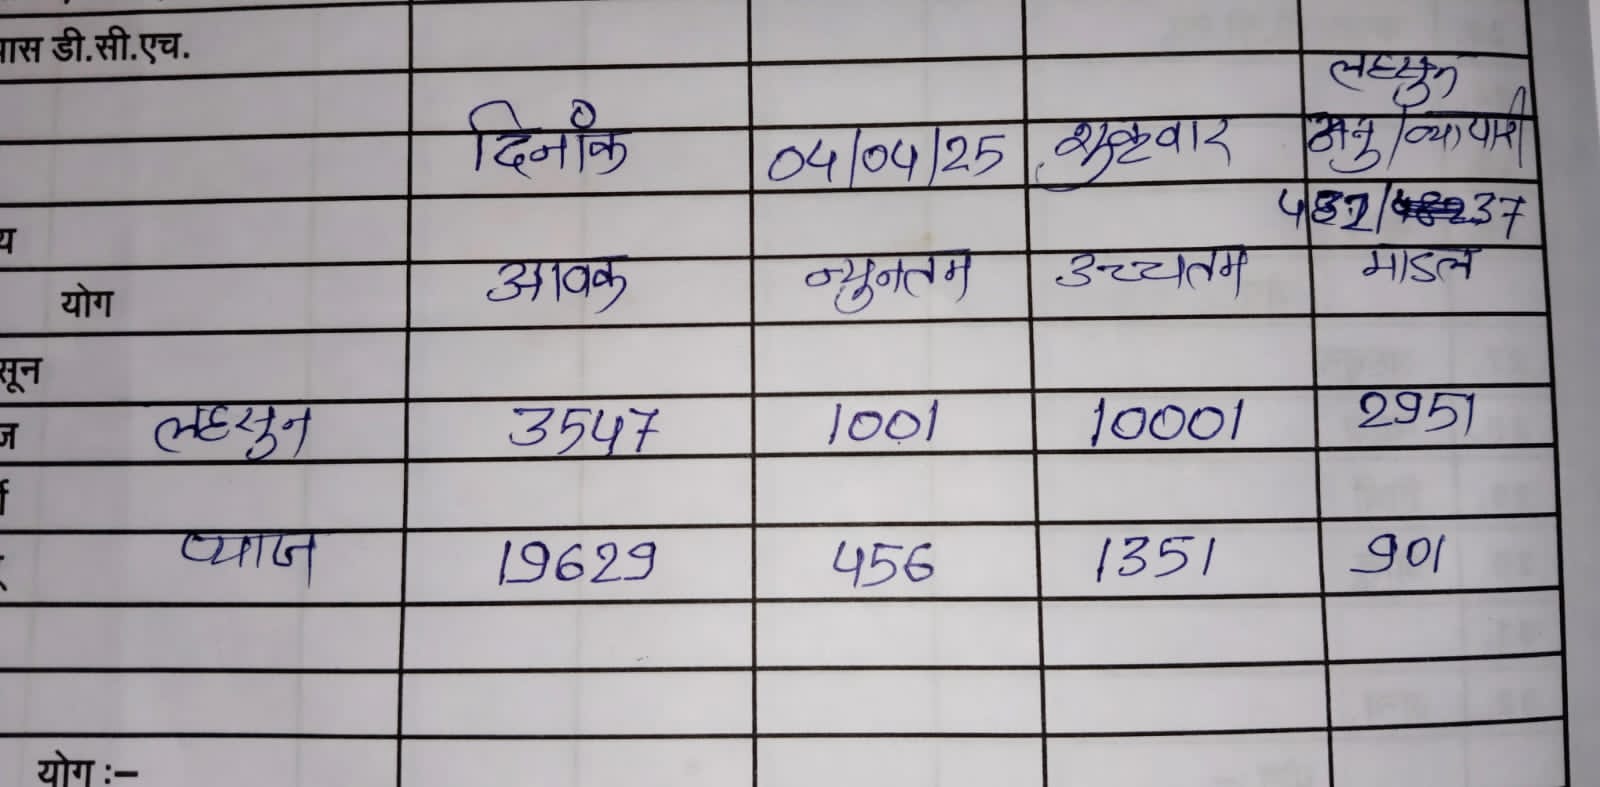 पास डी.सी.एच.
लहसुन
दिनाँक 04/04/25 शुक्रवार अनु/व्यापारी
37
य
आवक न्युनतम उच्चतम माडल
योग
सून
ज लहसुन 3547 1001 10001 2951
प्याज 19629 456 1351 901
योग :–